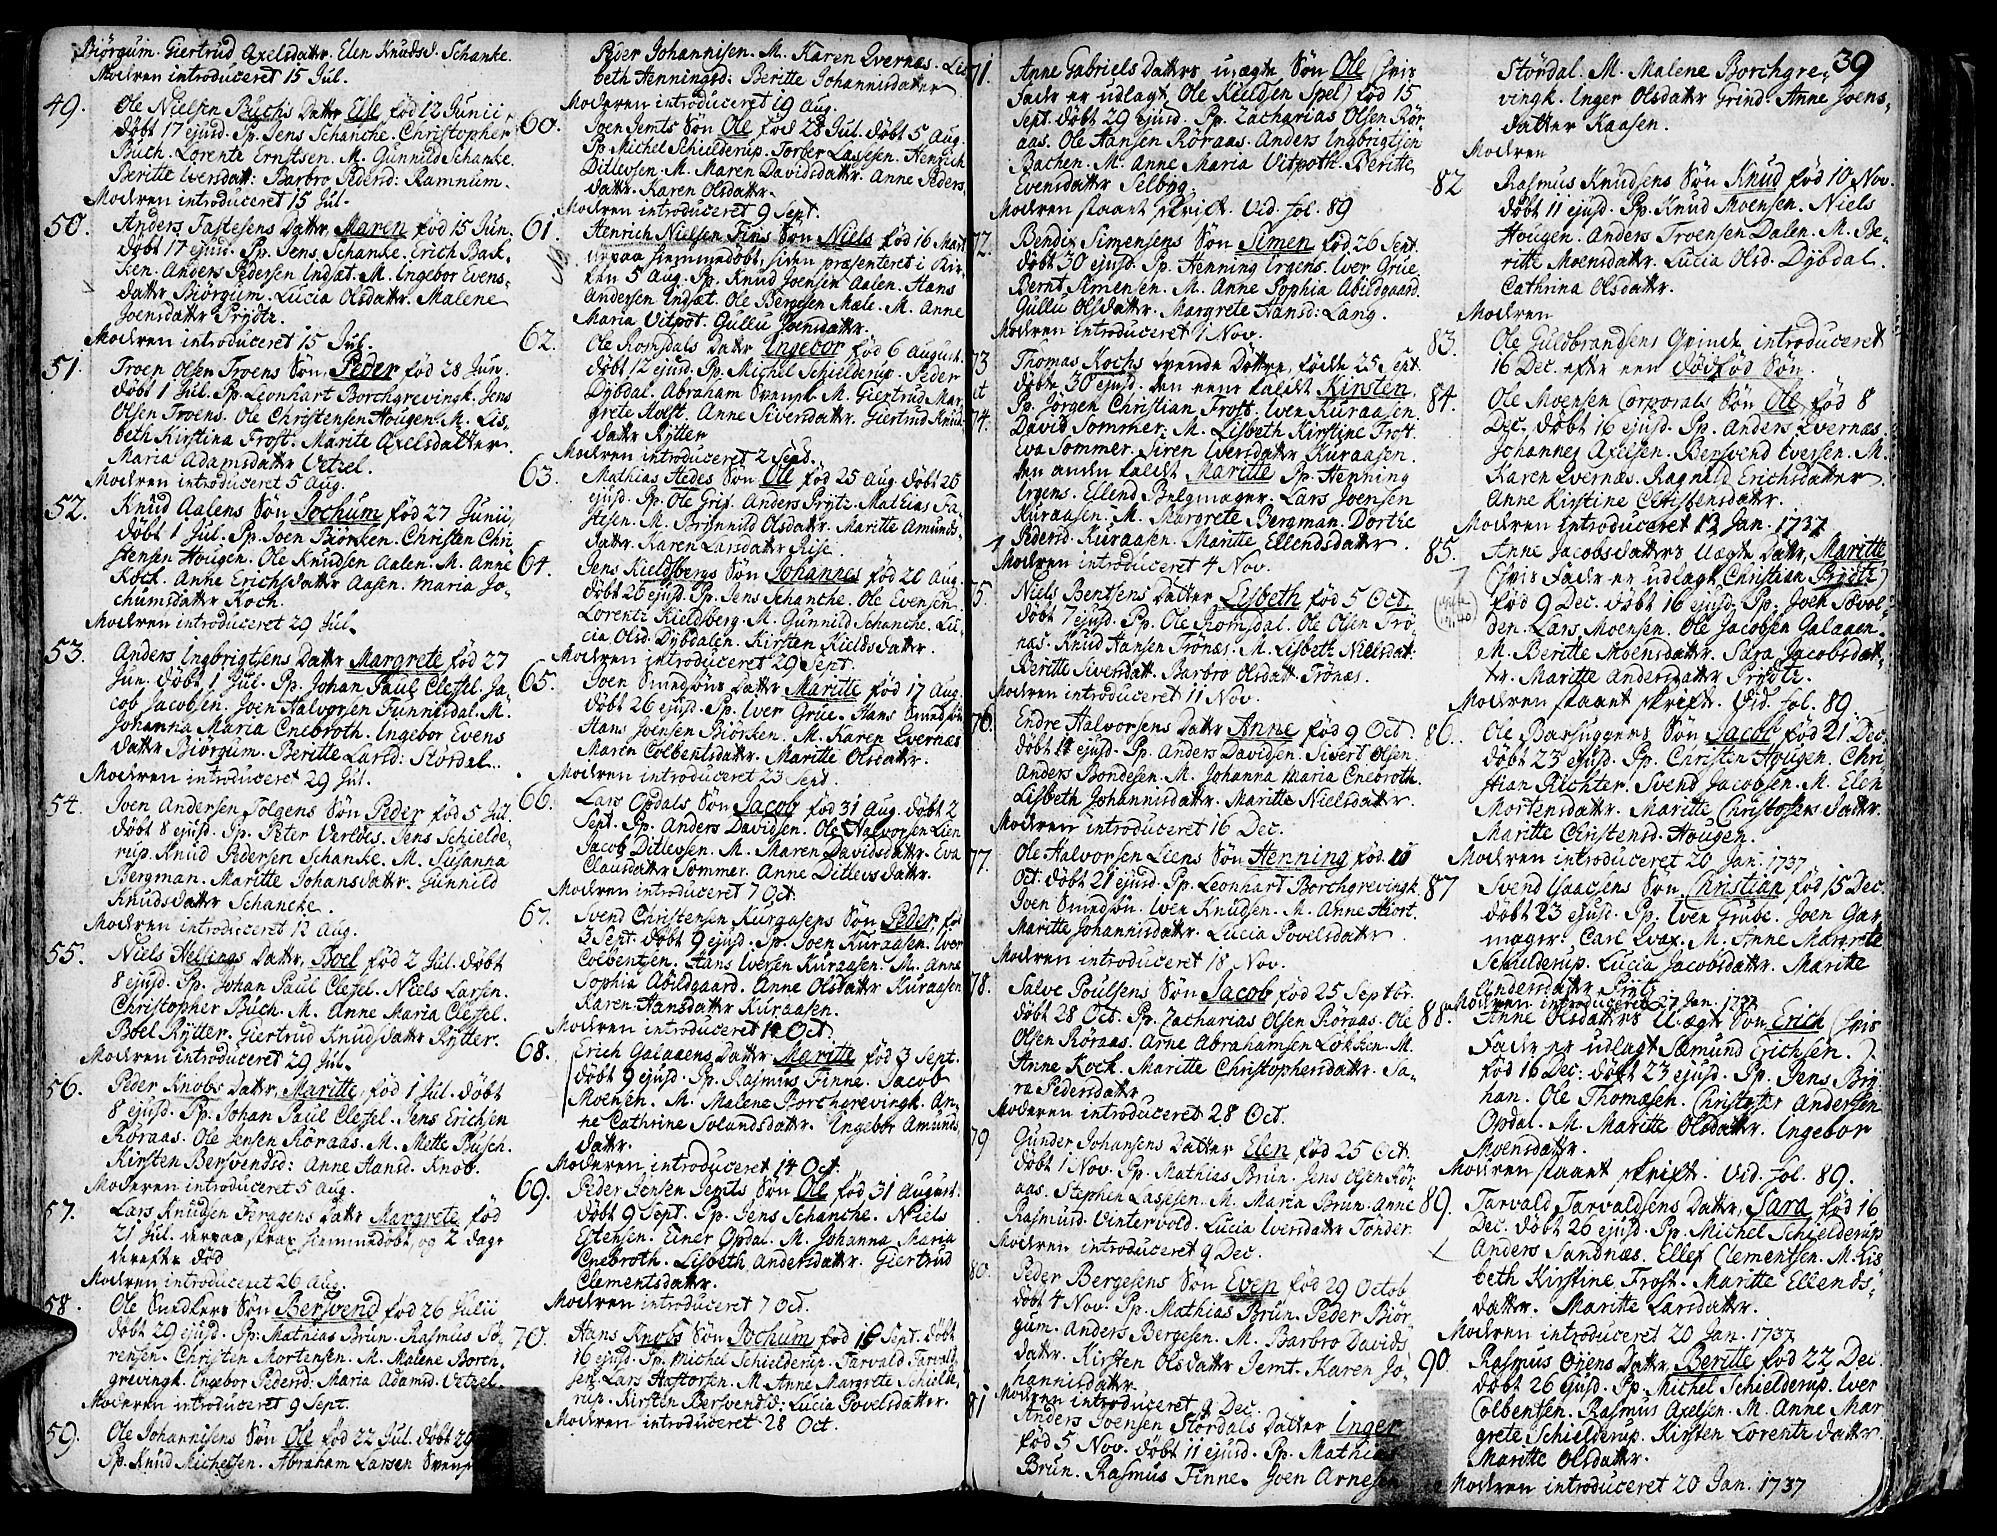 Biörgum. Giertrud Axelsdattr. Elen Knudsd. Schanke.
Modren introduceret 15 Jul.
49. Ole Nielsen Buchs Dattr Else fød 12 Junii,
døbt 17 ejusd. Pp. Jens Schanche. Christopher
Buch. Lorentz Ernstsen. M. Gunnild Schanke.
Beritte Iversdatt: Barbro Pedersd: Ramnum.
Modren introduceret 15 Jul.
50. Anders Fastesens Dattr Maren fød 15 Jun.
døbt 17 ejusd. Pp. Jens Schanke. Erich Bak-
ken. Anders Pedersen Indset. M. Ingebor Evens-
dattr Biörgum. Lucia Olsdattr. Malene
Joensdattr Prydtz.
Modren introduceret 15 Jul.
51. Troen Olsen Troens Søn Peder fød 28 Jun.
døbt 1 Jul. Pp. Leonhart Borchgrevingk. Jens
Olsen Troens. Ole Christensen Hougen. M. Lis-
beth Kirstina Frost. Marite Axelsdatter.
Maria Adamsdattr Vetzel.
Modren introduceret 5 Aug.
52. Knud Aalens Søn Jochum fød 27 Junii,
døbt 1 Jul. Pp. Joen Biörken. Christen Chri-
stensen Hougen. Ole Knudsen Aalen. M. Anne
Kock. Anne Erichsdattr Aasen. Maria Jo-
chumsdattr Koch.
Modren introduceret 29 Jul.
53. Anders Ingbrigtsens Dattr Margrete fød 27
Jun. døbt 1 Jul. Pp. Johan Paul Clessel. Ja-
cob Jacobsen. Joen Halvorsen Funnesdal. M.
Johanna Maria Cnebroth. Ingebor Evens
dattr Biörgum. Beritte Larsd: Stördal.
Modren introduceret 29 Jul.
54. Joen Andersen Tolgens Søn Peder fød 5 Jul.
døbt 8 ejusd. Pp. Peter Verldis. Jens Schielde-
rup. Knud Pedersen Schanke. M. Susanna
Bergman. Maritte Johansdattr. Gunnild
Knudsdattr Schancke.
Modren introduceret 12 Aug.
55. Niels Hessings Dattr, Boel fød 2 Jul. døbt
8 ejusd. Pp. Johan Paul Clessel. Niels Larsen.
Christopher Buch. M. Anne Maria Clessel.
Boel Rytter. Giertrud Knudsdattr Rytter.
Modren introduceret 29 Jul.
56. Peder Knobs Dattr, Maritte, fød 1 Jul. døbt
8 ejusd. Pp. Johan Paul Clessel. Jens Erichsen
Röraas. Ole Jensen Röraas. M. Mette Busch.
Kirsten Bersvendsd: Anne Hansd. Knob.
Modren introduceret 5 Aug.
57. Lars Knudsen Feragens Dattr Margrete fød
21 Jul. derpaa strax hiemmedøbt, og 2 dage
derefter død
Modren introduceret 26 Aug.
58. Ole Smedkers Søn Bersvend fød 26 Julii
døbt 29 ejusd. Pp: Mathias Brun. Rasmus Sö-
rensen. Christen Mortensen. M. Malene Borch-
grevingk. Ingebor Pedersd: Maria Adamsd. Vetzel.
Modren introduceret 9 Sept.
59. Ole Johannisens Søn Ole fød 22 Jul. døbt 29
Pp. Knud Michelsen. Abraham Larsen
Peder Johannisen. M. Karen Qvernæs. Lis
beth Henningsd: Beritte Johannisdatter
Modren introduceret 19 Aug.
60. Joen Jemts Søn Ole fød 28 Jul. døbt 5 Aug.
Pp Michel Schielderup. Torber Lassesen. Henrich
Ditlevsen. M. Maren Davidsdattr. Anne Peders
dattr. Karen Olsdattr.
Modren introduceret 9 Sept.
61. Henrich Nielsen Fins Søn Niels fød 16 Mart
derpaa hjemmedøbt, siden præsenteret i Kir-
ken 5 Aug. Pp. Knud Joensen Aalen. Hans
Andersen Indset. Ole Bergesen Mæle. M. Anne
Maria Vitpot. Gullu Joensdattr.
62. Ole Romsdals Dattr Ingebor fød 6 August.
døbt 12 ejusd. Pp. Michel Schielderup. Peder
Dybdal. Abraham Svenst. M. Giertrud Mar-
grete Holst. Anne Siversdattr. Giertrud Knud
dattr Rytter
Modren introduceret 2 Sept.
63. Mathias Hedes Søn Ole fød 25 Aug døbt 26
ejusd. Pp. Ole Grif. Anders Prytz. Mathias Fa-
stesen. M. Brynnild Olsdattr. Maritte Amunds
dattr. Karen Larsdattr Rise.
64. Jens Kieldsbergs Søn Johannes fød 20 Aug.
døbt 26 ejusd. Pp. Jens Schanche. Ole Evensen.
Lorentz Kieldberg. M. Gunnild Schanche. Lu-
cia Olsd. Dybdalen. Kirsten Kieldsdattr.
Modren introduceret 29 Sept.
65. Joen Smedsöns Dattr Maritte fød 17 Aug.
døbt 26 ejusd. Pp. Iver Grue. Hans Smedsön
Hans Joensen Biörken. M. Karen Qvernæs
Marin Colbentsdattr. Maritte Olsdattr.
Modren introduceret 23 Sept.
66. Lars Opdals Søn Jacob fød 31 Aug. døbt 2
Sept. Pp. Anders Davidsen. Ole Halvorsen Lien
Jacob Ditlevsen. M. Maren Davidsdattr. Eva
Clausdattr Sommer. Anne Ditlevsdattr.
Modren introduceret 7 Oct.
67. Svend Christensen Kuraasens Søn Peder, fød
3 Sept. døbt 9 ejusd. Pp. Joen Kuraasen. Iver
Colbentsen. Hans Iversen Kuraasen. M. Anne
Sophia Abildgaard. Anne Olsdattr Kuraasen
Karen Hansdattr Kuraasen.
Modren introduceret 14 Oct.
68. Erich Galaaens Dattr Maritte fød 3 Sept.
døbt 9 ejusd. Pp. Rasmus Finne. Jacob
Moensen. M. Malene Borchgrevingk. An-
ne Cathrine Solandsdattr. Ingebor Amunds
dattr.
Modren introduceret 14 Oct.
69. Peder Jensen Jemts Søn Ole fød 31 August.
døbt 9 Sept. Pp. Jens Schanche. Niels
Estensen. Einer Opdal. M. Johanna Maria
Cnebroth. Lisbeth Andersdattr. Giertrud
Clementsdattr.
Modren introduceret 7 Oct.
70. Hans Knobs Søn Jochum fød 16 Sept. døbt
16 ejusd. Pp. Michel Schielderup. Tarvald Tarvald
sen. Lars Hostorsen. M. Anne Margrete Schielde-
rup. Kirsten Bersvendsd: Lucia Povelsdatter.
Modren introduceret 28 Oct.
71. Anne Gabriels Datters uægte Søn Ole (hvis
Fader er udlagt Ole Kieldsen Spel) fød 15
Sept. døbt 29 ejusd. Pp. Zacharias Olsen Rör-
aas. Ole Hansen Röraas. Anders Ingbrigtsen
Bachen. M. Anne Maria Vitpoth. Beritte
Evensdattr Selbyg.
Modren staaet skrift. Vid. fol. 89
72. Bendix Simensens Søn Simen fød 26 Sept.
døbt 30 ejusd. Pp. Henning Irgens. Iver Grue.
Bernt Simensen. M. Anne Sophia Abildgaard.
Gullu Olsdattr. Margrete Hansd: Lang.
Modren introduceret 1 Nov.
73 et 74. Thomas Kochs tvende Døttre, fødte 25 Sept.
døbte 30 ejusd. den eene kaldet Kirsten.
Pp. Jörgen Christian Frost. Iven Kuraasen.
David Sommer. M. Lisbeth Kirstine Frost.
Eva Sommer. Siren Iversdattr Kuraasen.
den anden kaldet Maritte Pp. Henning
Irgens. Ellend Belgmager. Lars Joensen
Kuraasen. M. Margrete Bergman. Dortie
Pedersd. Kuraasen. Maritte Ellendsdattr.
Modren introduceret 4 Nov.
75. Niels Bentsens Datter Lisbeth fød 5 Oct.
døbt 7 ejusd. Pp. Ole Romsdal. Ole Olsen Trö-
næs. Knud Hansen Trönæs. M. Lisbeth Nielsdat.
Beritte Siversdatt. Barbro Olsdatt. Trönæs.
Modren introduceret 11 Nov.
76. Endre Halvorsens Dattr Anne fød 9 Oct.
døbt 14 ejusd. Pp. Anders Davidsen. Sivert Olsen.
Anders Bondesen. M. Johanna Maria Cnebroth.
Lisbeth Johannisdattr. Maritte Nielsdattr.
Modren introduceret 16 Dec.
77. Ole Halvorsen Liens Søn Henning fød. 10
Oct. døbt 21 ejusd. Pp. Leonhart Borchgrevingk.
Joen Smedsön. Iven Knudsen. M. Anne Hiort.
Maritte Johannisdattr. Lucia Povelsdattr
Modren introduceret 18 Nov.
78. Salve Poulsens Søn Jacob fød 25 Septbr.
døbt 28 Oct. Pp. Zacharias Olsen Röraas. Ole
Olsen Röraas. Arne Abrahamsen Løkken. M.
Anne Kock. Maritte Christophersdattr. Sa-
ra Pedersdattr
Modren introduceret 28 Oct.
79 Gunder Johansens Datter Elen fød 25 Oct.
døbt 1 Nov. Pp. Mathias Brun. Jens Olsen Rör-
aas. Stephen Lassesen. M. Maria Brun. Anne
Rasmusd. Vintervold. Lucia Iversdattr Tönder.
Modren introduceret 9 Dec.
80. Peder Bergesens Søn Even fød 29 Octob.
døbt 4 Nov. Pp. Mathias Brun. Peder Biör-
gum. Anders Bergesen. M. Barbro Davids
dattr. Kirsten Olsdattr Jemt. Karen Jo-
hannisdattr
Modren introduceret 9 Dec.
81 Anders Joensen Stördals Datter Inger
fød 5 Nov. døbt 11 ejusd. Pp. Mathias
Brun. Rasmus Finne. Joen Arnesen
39
Stördal. M. Malene Borchgre-
vingk. Inger Olsdattr Grind. Anne Joens-
datter Kaasen.
Modren
82 Rasmus Knudsens Søn Knud fød 10 Nov.
døbt 11 ejusd. Pp. Knud Moensen. Niels
Hougen. Anders Troensen Dalen. M. Be-
ritte Moensdattr. Lucia Olsd. Dybdal.
Cathrina Olsdattr.
Modren
83. Ole Guldbrandsens Qvinde introduceret
16 Dec. efter een dødfød Søn.
84. Ole Moensen Corporals Søn Ole fød 8
Dec. døbt 16 ejusd. Pp. Anders Qvernæs.
Johannes Axelsen. Bersvend Iversen. M.
Karen Qvernæs. Ragnild Erichsdatter
Anne Kirstine Christensdattr.
Modren introduceret 13 Jan. 1737
85. Anne Jacobsdatters Uægte Dattr, Maritte
(hvis Fader er udlagt Christian Prydtz)
fød 9 Dec. døbt 16 ejusd. Pp. Joen Povol-
den. Lars Moensen. Ole Jacobsen Galaaen.
M. Beritte Moensdattr. Sara Jacobsdat-
tr. Maritte Andersdattr Prydtz.
Modren staaet skrift. Vid. fol. 89
86. Ole Barhuggers Søn Jacob fød 21 Dec.
døbt 23 ejusd. Pp. Christen Hougen. Chri
stian Richter. Svend Jacobsen. M. Elen
Mortensdattr. Maritte Christophersdattr.
Maritte Christensd. Hougen.
Modren introduceret 20 Jan. 1737.
87 Svend Isacsens Søn Christian fød 15 Dec.
døbt 23 ejusd. Pp. Iver Grube. Joen Gar
mager. Carl Qvax. M. Anne Margrete
Schielderup. Lucia Jacobsdattr. Maritte
Andersdattr Prytz
Modren introduceret 27 Jan. 1737
88. Anne Olsdatters Uægte Søn Erich (hvis
Fader er udlagt Sæmund Erichsen.)
fød 16 Dec. døbt 23 ejusd. Pp. Jens Bry-
han. Ole Thomæsen. Christopher Andersen
Opdal. M. Maritte Olsdattr. Ingebor
Moensdattr.
Modren staaet skrift. Vid. fol. 89.
89. Tarvald Tarvaldsens Dattr, Sara fød 16
Dec. døbt 26 ejusd. Pp. Michel Schielderup
Anders Sandnæs. Ellef Clementsen. M. Lis
beth Kirstine Frost. Maritte Ellends-
dattr. Maritte Larsdattr.
Modren introduceret 20 Jan. 1737
90. Rasmus Öyens Dattr, Beritte fød 22 Dec.
døbt 26 ejusd. Pp. Michel Schielderup. Iver
Colbentsen. Rasmus Axelsen. M. Anne Mar
grete Schielderup. Kirsten Lorentz dattr.
Maritte Olsdattr.
Modren introduceret 20 Jan. 1737